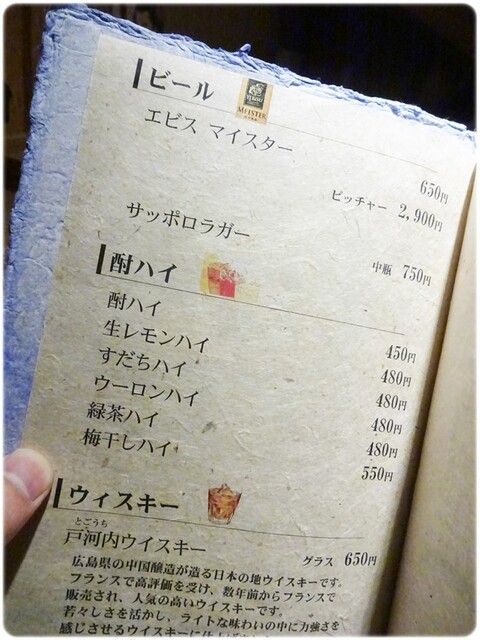 ビール
MEISTER
エビス マイスター
650円
ピッチャー 2,900円
サッポロラガー
中瓶 750円
酎ハイ
酎ハイ 450円
生レモンハイ 480円
すだちハイ 480円
ウーロンハイ 480円
緑茶ハイ 480円
梅干しハイ 550円
ウィスキー
とごうち
戸河内ウイスキー
グラス 650円
広島県の中国醸造が造る日本の地ウイスキーです。
フランスで高評価を受け、数年前からフランスで
販売され、人気の高いウイスキーです。
若々しさを活かし、ライトな味わいの中に力強さを
感じさせるウイスキーに